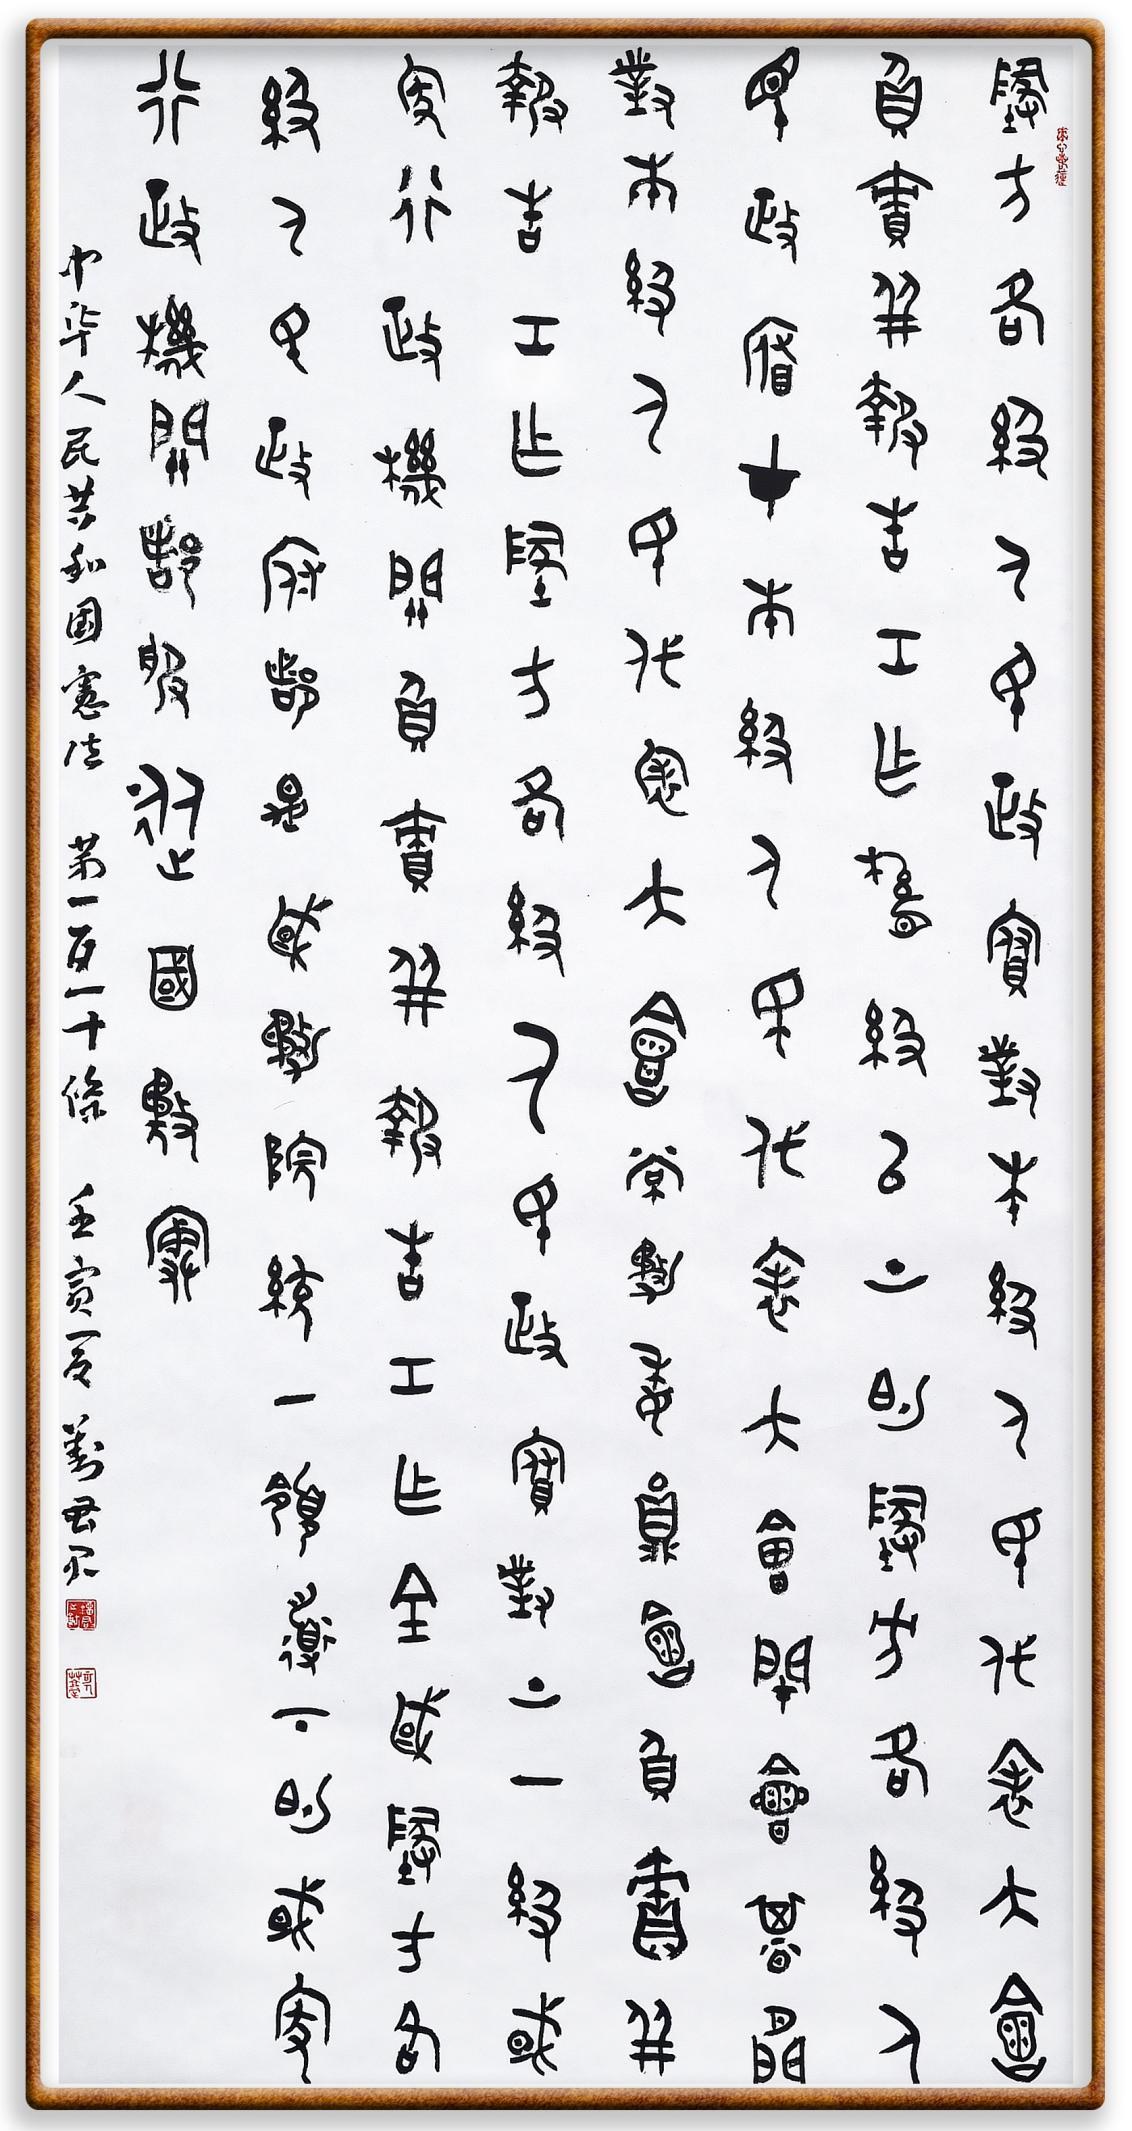 地方各級人民政府對本級人民代表大會
負責并報告工作縣級以上的地方各級人
民政府在本級人民代表大會閉會期間
對本級人民代表大會常務委員會負責并
報告工作地方各級人民政府對上一級國
家行政機關負責并報告工作全國地方各
級人民政府都是國務院統一領導下的國家
行政機關都服從國務院
中华人民共和国憲法 第一百一十條 壬寅夏